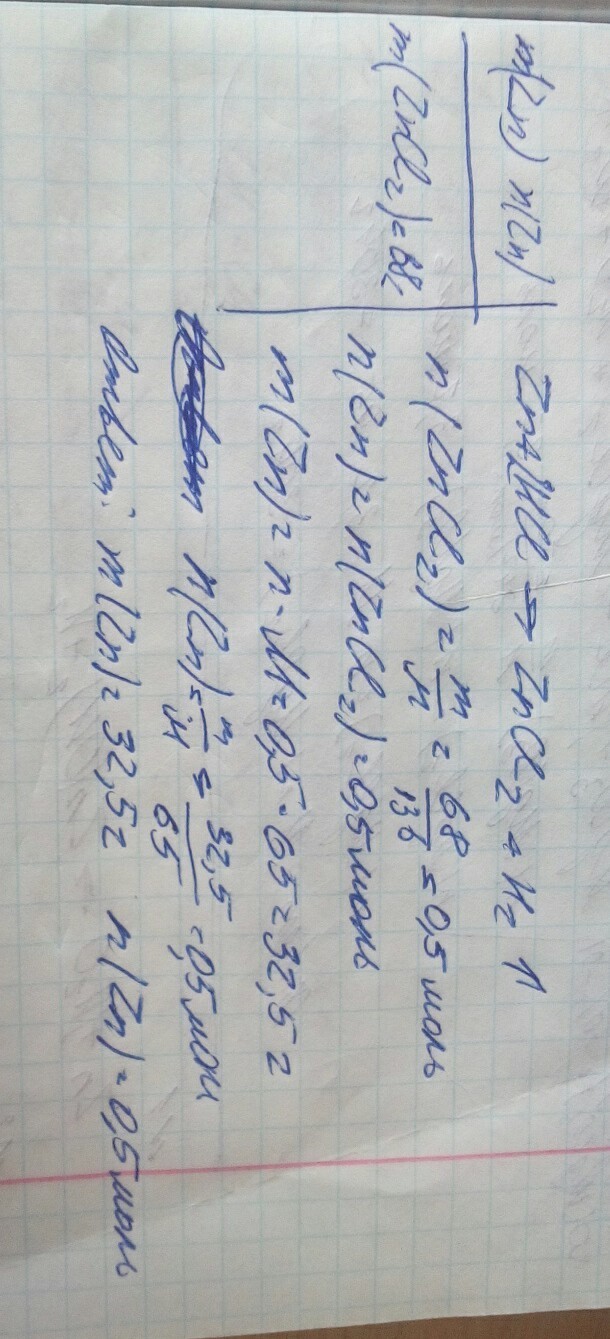 m(Zn) n(Zn)
m(ZnCl₂)=68г
Zn+2HCl → ZnCl₂ + H₂ ↑
n(ZnCl₂) = m/M = 68/136 = 0,5 моль
n(Zn) = n(ZnCl₂) = 0,5 моль
m(Zn) = n · M = 0,5 · 65 = 32,5 г
n(Zn) = m/M = 32,5/65 = 0,5 моль
Ответ: m(Zn) = 32,5 г n(Zn) = 0,5 моль